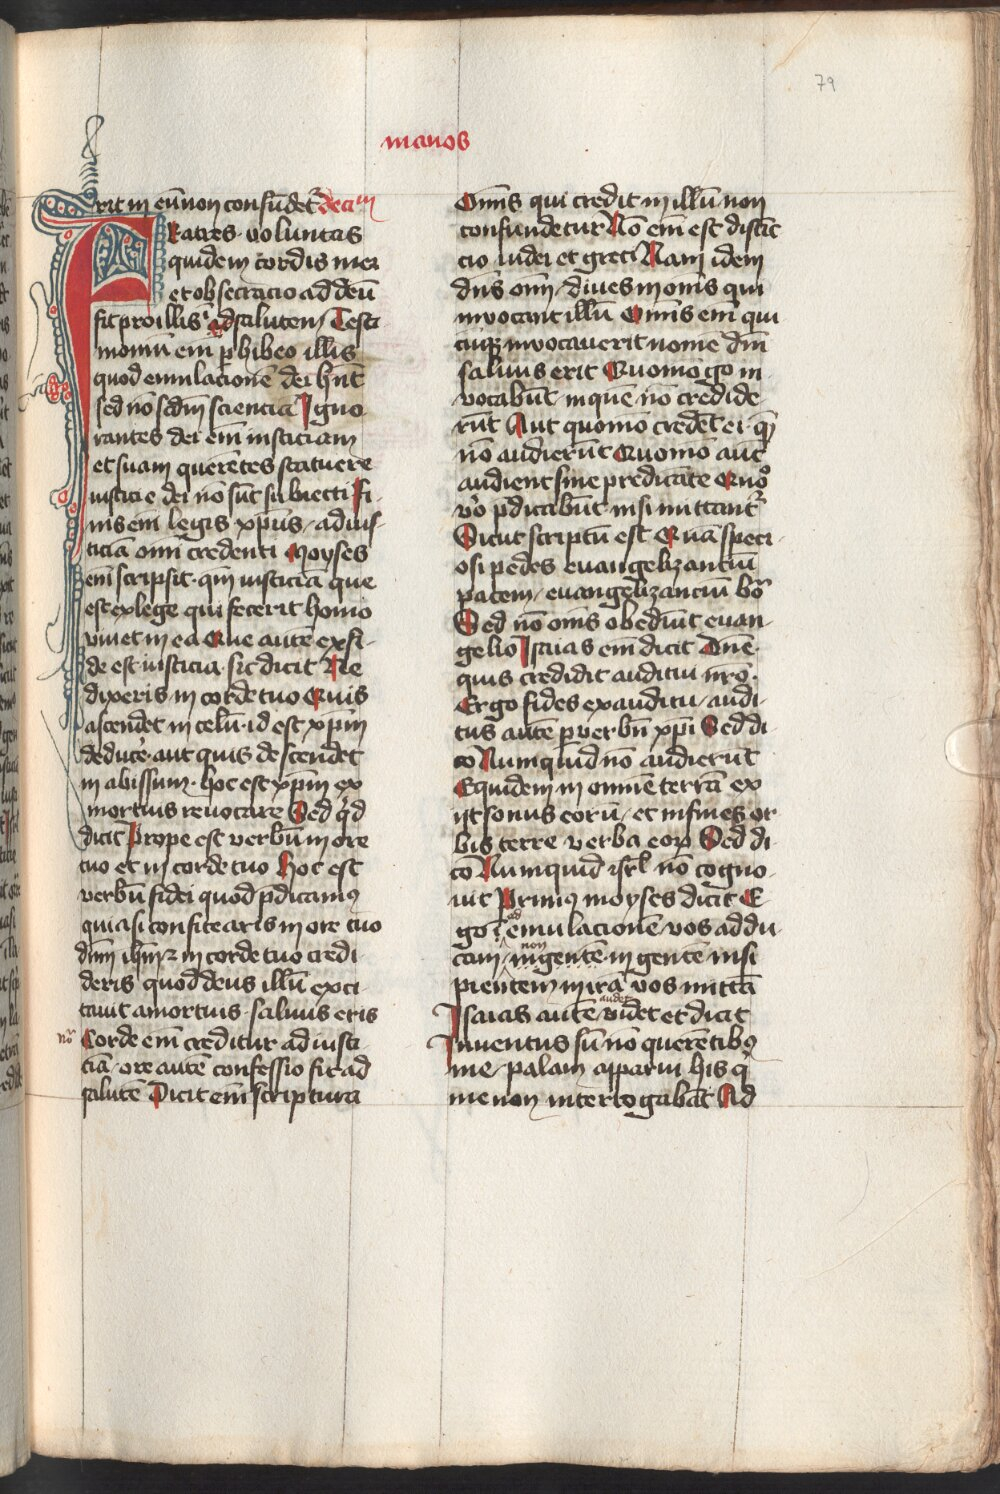 79
manos
rit in eū non confūdet᷑ decim
Fratres · voluntas
quidem cordis mei
et obsecracio ad deū
fit pro illis ad salutem Testi
moniū em̄ ꝑhibeo illis
quod emulacionē dei hn̄t
sed nō scd̄m scienciā Igno
rantes dei em̄ iusticiam
et suam querētes statuere
iusticie dei nō sūt subiecti Fi
nis em̄ legis xp̄us / ad ius
ticiā omī credenti Moyses
em̄ scripsit · qm̄ iusticiā que
est ex lege qui fecerit homo
viuet in ea Que autē ex fi
de est iusticia · sic dicit Ne
dixeris in corde tuo Quis
ascendet in celū · id est xp̄m
deduc̄e · aut quis descendet
in abissum · hoc est xp̄m ex
mortuis reuocare Sed qͥd
dicit Prope est verbū in ore
tuo et in corde tuo Hoc est
verbū fidei quod p̄dicamꝰ
quia si confitearis in ore tuo
dn̄m ihm̄ ⁊ in corde tuo credi
deris quod deus illū exci
tauit a mortuis · saluus eris
no᷑ Corde em̄ creditur ad iusti
ciā · ore autē confessio fit ad
salutē Dicit em̄ scriptura
Om̄is qui credit in illū non
confundetur Nō em̄ est distīc
cio iudei et greci Nam idem
dn̄s om̄i / diues in om̄is qui
inuocant illū Om̄is em̄ qui
cūqꝫ inuocauerit nomē dn̄i
saluus erit Quomō go in
vocabūt in quē nō credide
rūt Aut quomō credēt ei · qē
nō audierūt Quomō aūt
audient sine predicāte Quōo
v̄o p̄dicabūt nisi mittant᷑
Sicut scriptū est Quā speci
osi pedes euangelizanciū
pacem / euangelizanciū bōa
Sed nō om̄is obediūt euan
gelio Isaias em̄ dicit Dn̄e ·
quis credidit auditui nr̄o ·
Ergo fides ex auditu / audi
tus autē ꝑ verbū xp̄i Sed di
co Numquid nō audierūt
Equidem in omnē terrā ex
iit sonus eorū / et in fines or
bis terre verba eoꝝ Sed di
co Numquid isrl̄ nō cogno
uit Primꝰ moyses dicit E
go ad emulacionē vos addu
cam / non in gentē in gentē insi
pientem in irā vos mittā
Isaias autē audet et dicit
Inuentus sū nō querētibꝰ
me / palam apparui his qͥ
me non interrogabāt Ad